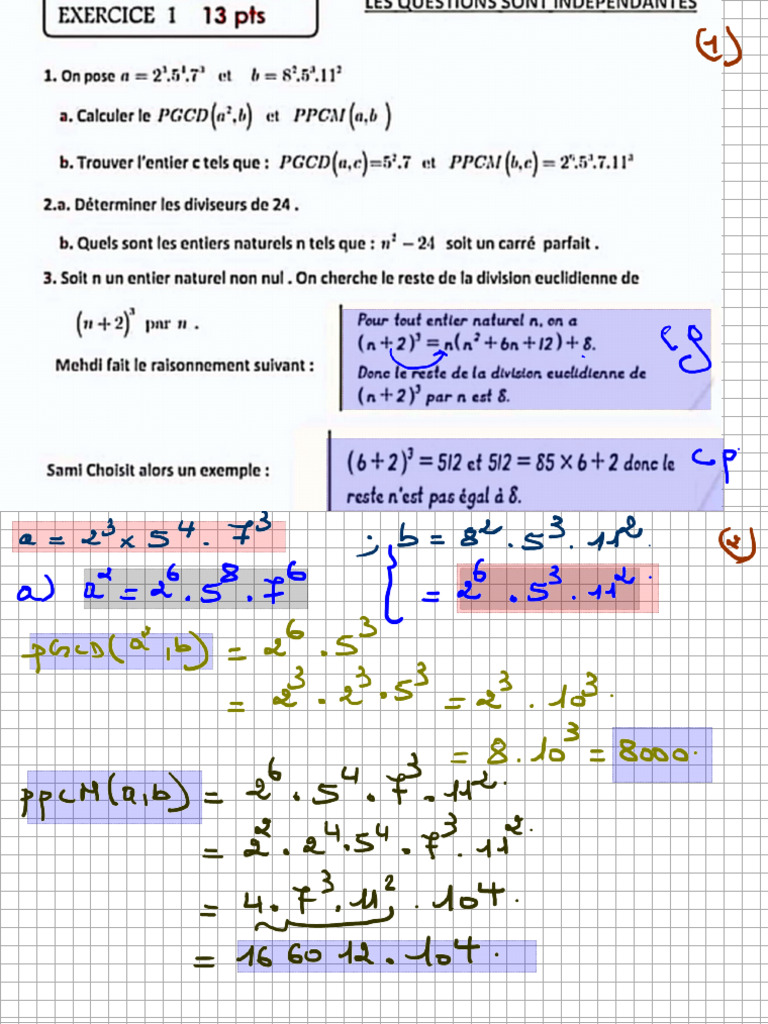 LES QUESTIONS SONT INDEPENDANTES
EXERCICE 1 13 pts
(1)
1. On pose a = 2³.5⁴.7³ et b = 8².5³.11²
a. Calculer le PGCD(a²,b) et PPCM(a,b )
b. Trouver l'entier c tels que : PGCD(a,c)=5².7 et PPCM(b,c) = 2⁶.5³.7.11³
2.a. Déterminer les diviseurs de 24 .
b. Quels sont les entiers naturels n tels que : n² − 24 soit un carré parfait .
3. Soit n un entier naturel non nul . On cherche le reste de la division euclidienne de
(n + 2)³ par n .
Mehdi fait le raisonnement suivant :
Pour tout entier naturel n, on a
(n + 2)³ = n(n² + 6n + 12) + 8.
Donc le reste de la division euclidienne de
(n + 2)³ par n est 8.
Sami Choisit alors un exemple :
(6 + 2)³ = 512 et 512 = 85 × 6 + 2 donc le
reste n'est pas égal à 8.
cp
a = 2³ × 5⁴ . 7³ ; b = 8² . 5³ . 11²
(2)
a) a² = 2⁶ . 5⁸ . 7⁶ = 2⁶ . 5³ . 11² .
PGCD(a², b) = 2⁶ . 5³
= 2³ . 2³ . 5³ = 2³ . 10³ .
= 8 . 10³ = 8000 .
PPCM(a,b) = 2⁶ . 5⁴ . 7³ . 11² .
= 2² . 2⁴ . 5⁴ . 7³ . 11² .
= 4 . 7³ . 11² . 10⁴ .
= 16 60 12 . 10⁴ .